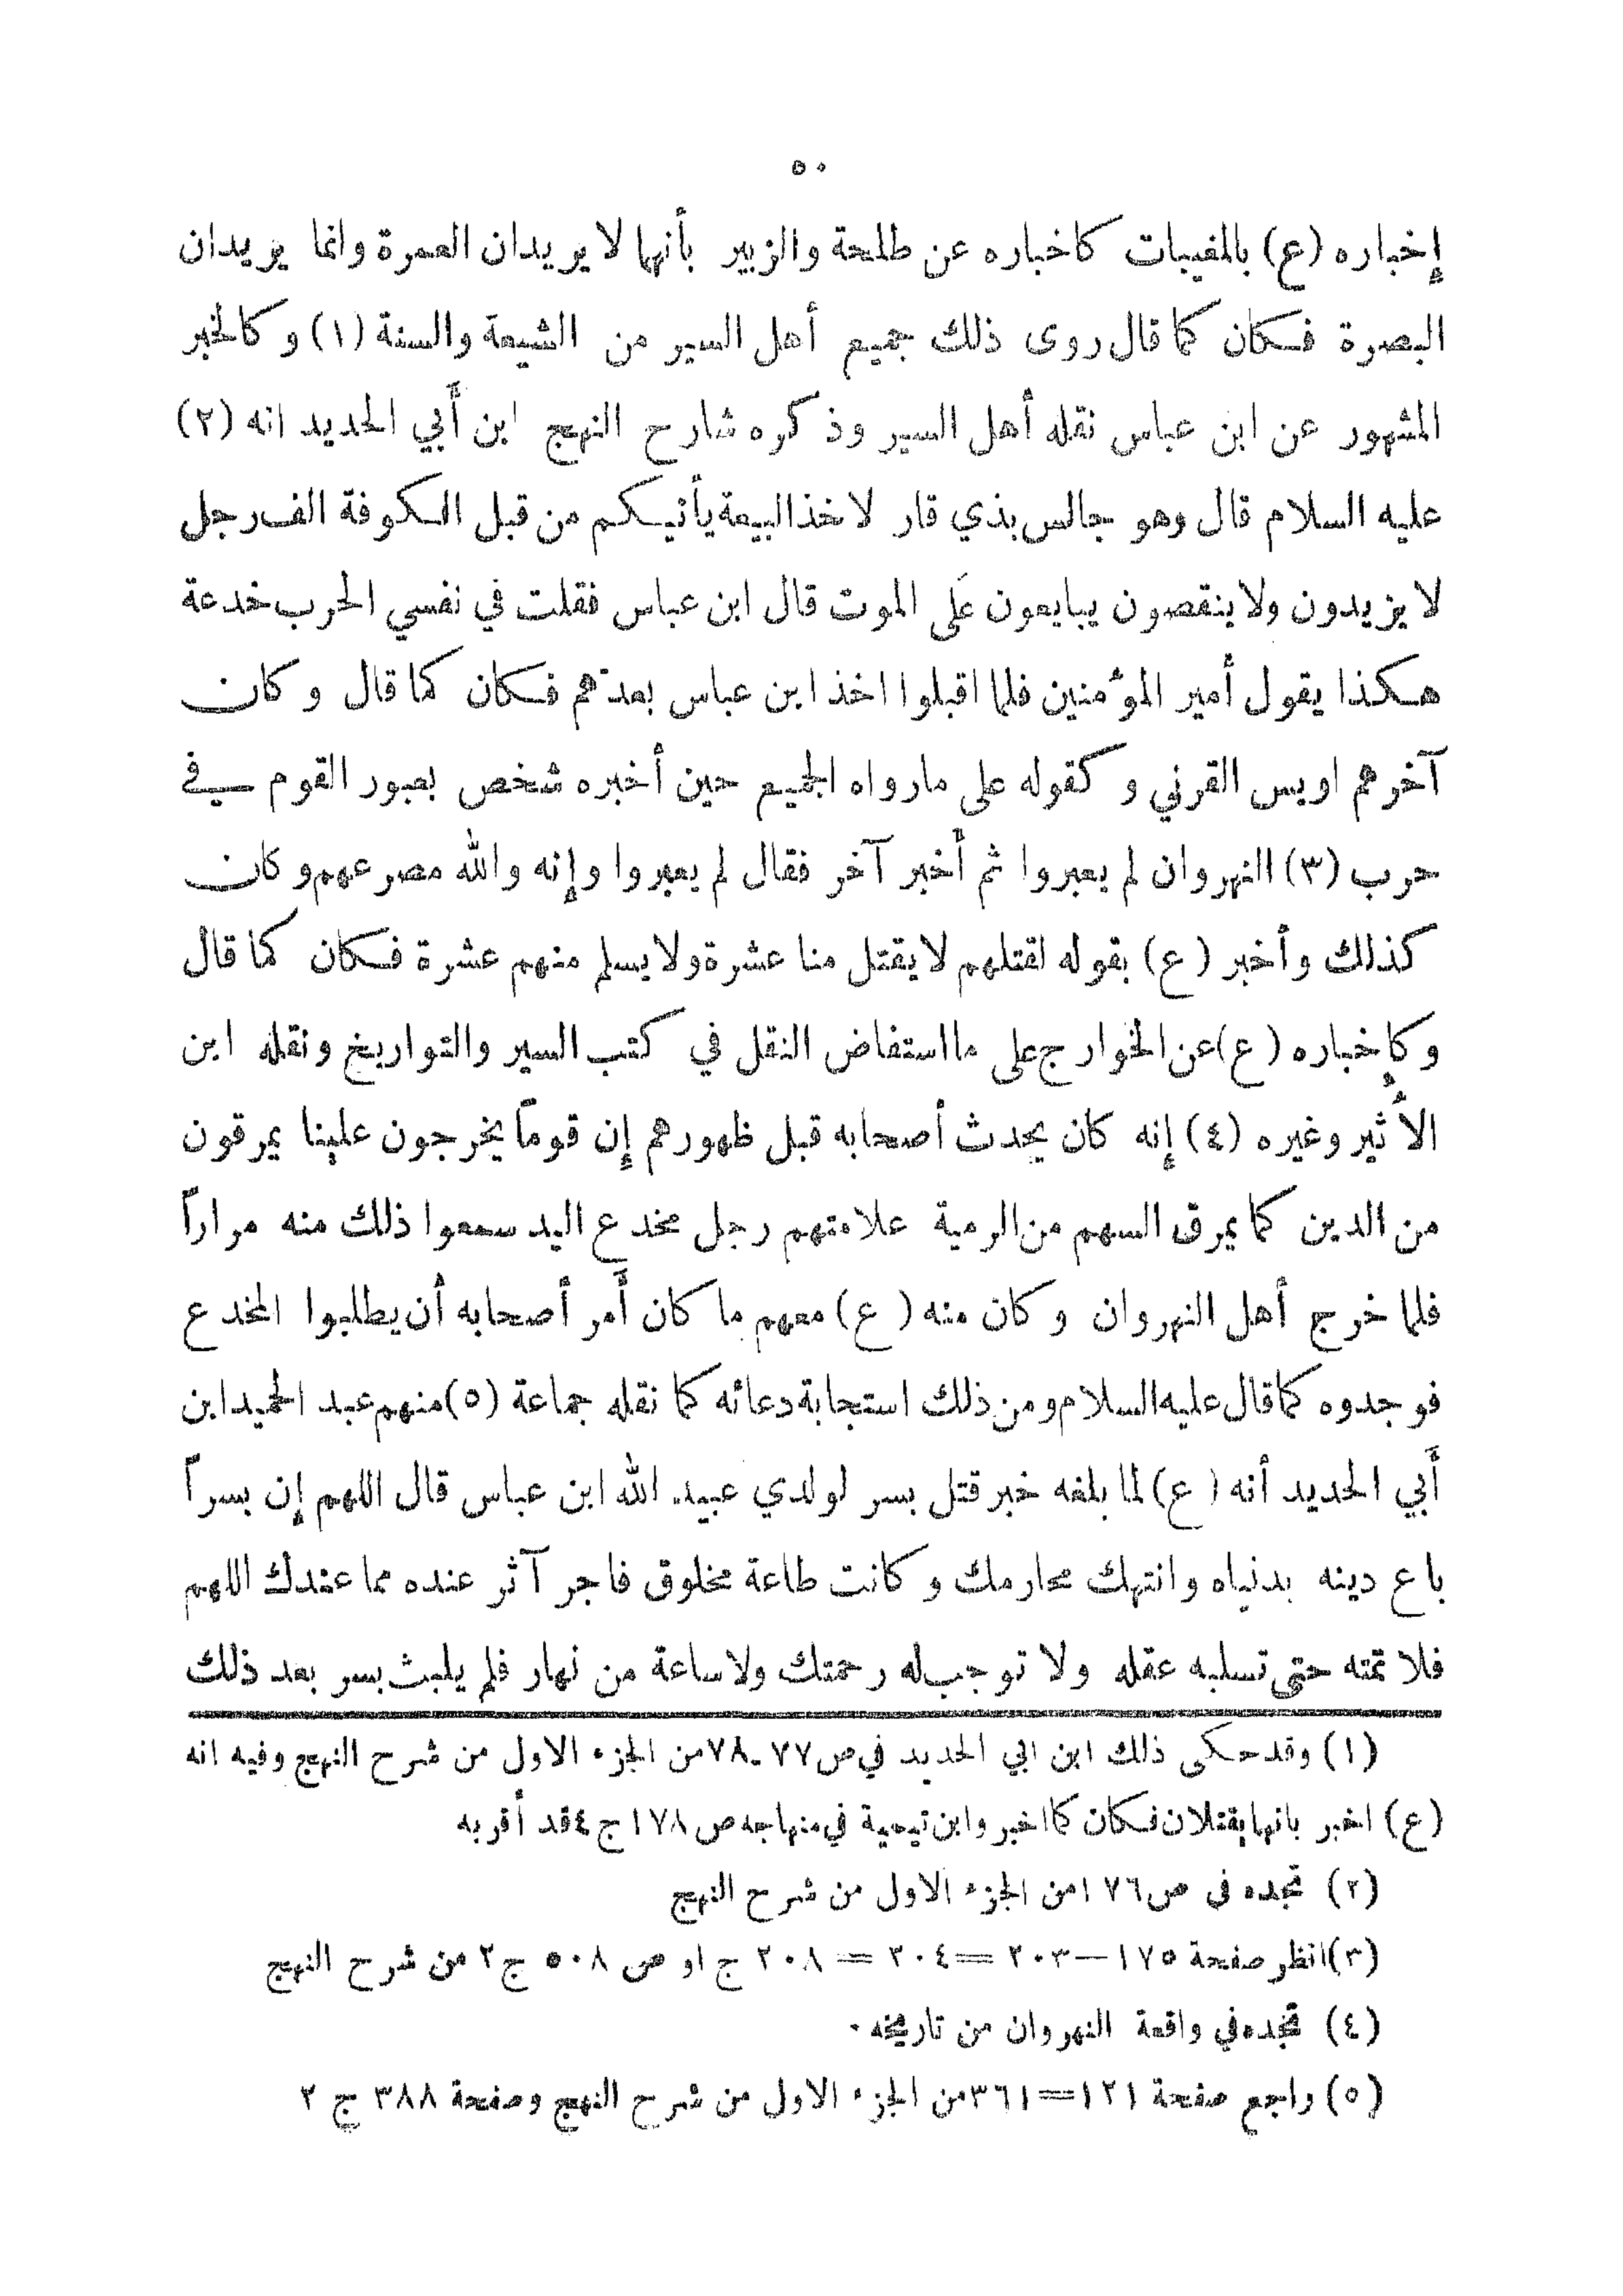 ٥٠
إخباره (ع) بالمغيبات كاخباره عن طلحة والزبير بأنهما لا يريدان العمرة وانما يريدان
البصرة فكان كما قال روى ذلك جميع أهل السير من الشيعة والسنة (١) وكالخبر
المشهور عن ابن عباس نقله أهل السير وذكره شارح النهج ابن أبي الحديد انه (٢)
عليه السلام قال وهو جالس بذي قار لاخذ البيعة يأتيكم من قبل الكوفة الف رجل
لا يزيدون ولا ينقصون يبايعون على الموت قال ابن عباس فقلت في نفسي الحرب خدعة
هكذا يقول أمير المؤمنين فلما اقبلوا اخذ ابن عباس بعدهم فكان كما قال وكان
آخرهم اويس القرني وكقوله على مارواه الجميع حين أخبره شخص بعبور القوم في
حرب (٣) النهروان لم يعبروا ثم أخبر آخر فقال لم يعبروا وإنه والله مصرعهم وكان
كذلك وأخبر (ع) بقوله لقتلهم لا يقتل منا عشرة ولا يسلم منهم عشرة فكان كما قال
وكإخباره (ع) عن الخوارج على ما استفاض النقل في كتب السير والتواريخ ونقله ابن
الأثير وغيره (٤) إنه كان يحدث أصحابه قبل ظهورهم إن قوماً يخرجون علينا يمرقون
من الدين كما يمرق السهم من الرمية علامتهم رجل مخدع اليد سمعوا ذلك منه مراراً
فلما خرج أهل النهروان وكان منه (ع) معهم ما كان أمر أصحابه أن يطلبوا المخدع
فوجدوه كما قال عليه السلام ومن ذلك استجابة دعائه كما نقله جماعة (٥) منهم عبد الحميد ابن
أبي الحديد أنه (ع) لما بلغه خبر قتل بسر لولدي عبيد الله ابن عباس قال اللهم إن بسراً
باع دينه بدنياه وانتهك محارمك وكانت طاعة مخلوق فاجر آثر عنده مما عندك اللهم
فلا تمته حتى تسلبه عقله ولا توجب له رحمتك ولا ساعة من نهار فلم يلبث بسر بعد ذلك
(١) وقد حكى ذلك ابن ابي الحديد في ص ٧٧-٧٨ من الجزء الاول من شرح النهج وفيه انه
(ع) اخبر بانهما يقتلان فكان كما اخبر وابن تيمية في منهاجه ص ١٧٨ ج ٤ قد أقر به
(٢) تجده في ص ١٧٦ من الجزء الاول من شرح النهج
(٣) انظر صفحة ١٧٥—٢٠٣=٢٠٤=٢٠٨ ج ١ و ص ٥٠٨ ج ٢ من شرح النهج
(٤) تجده في واقعة النهروان من تاريخه .
(٥) راجع صفحة ١٢١=٣٦١ من الجزء الاول من شرح النهج وصفحة ٣٨٨ ج ٢